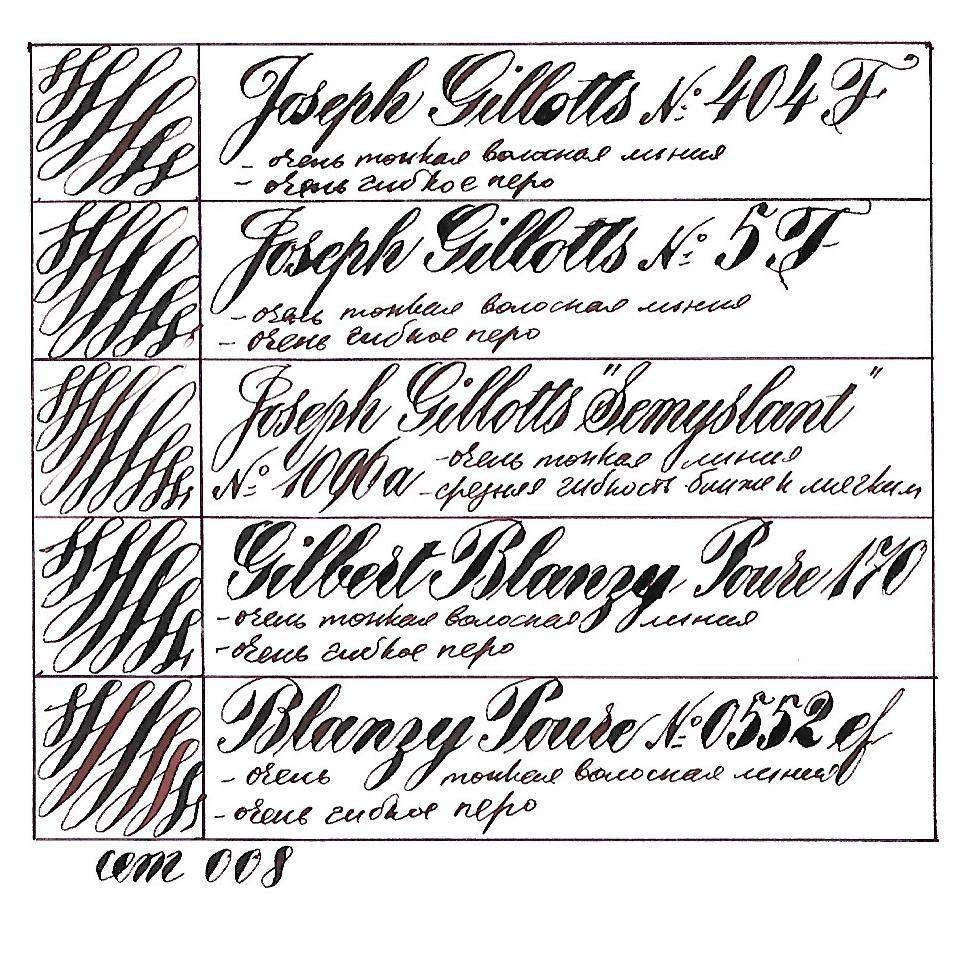 Joseph Gillotts №: 404 F
- очень тонкая волосная линия
- очень гибкое перо
Joseph Gillotts №: 5 F
- очень тонкая волосная линия
- очень гибкое перо
Joseph Gillotts "Semyslant"
№: 1096a
- очень тонкая линия
- средняя гибкость ближе к мягким
Gilbert Blanzy Poure 170
- очень тонкая волосная линия
- очень гибкое перо
Blanzy Poure №: 0552 ef
- очень тонкая волосная линия
- очень гибкое перо
сет 008